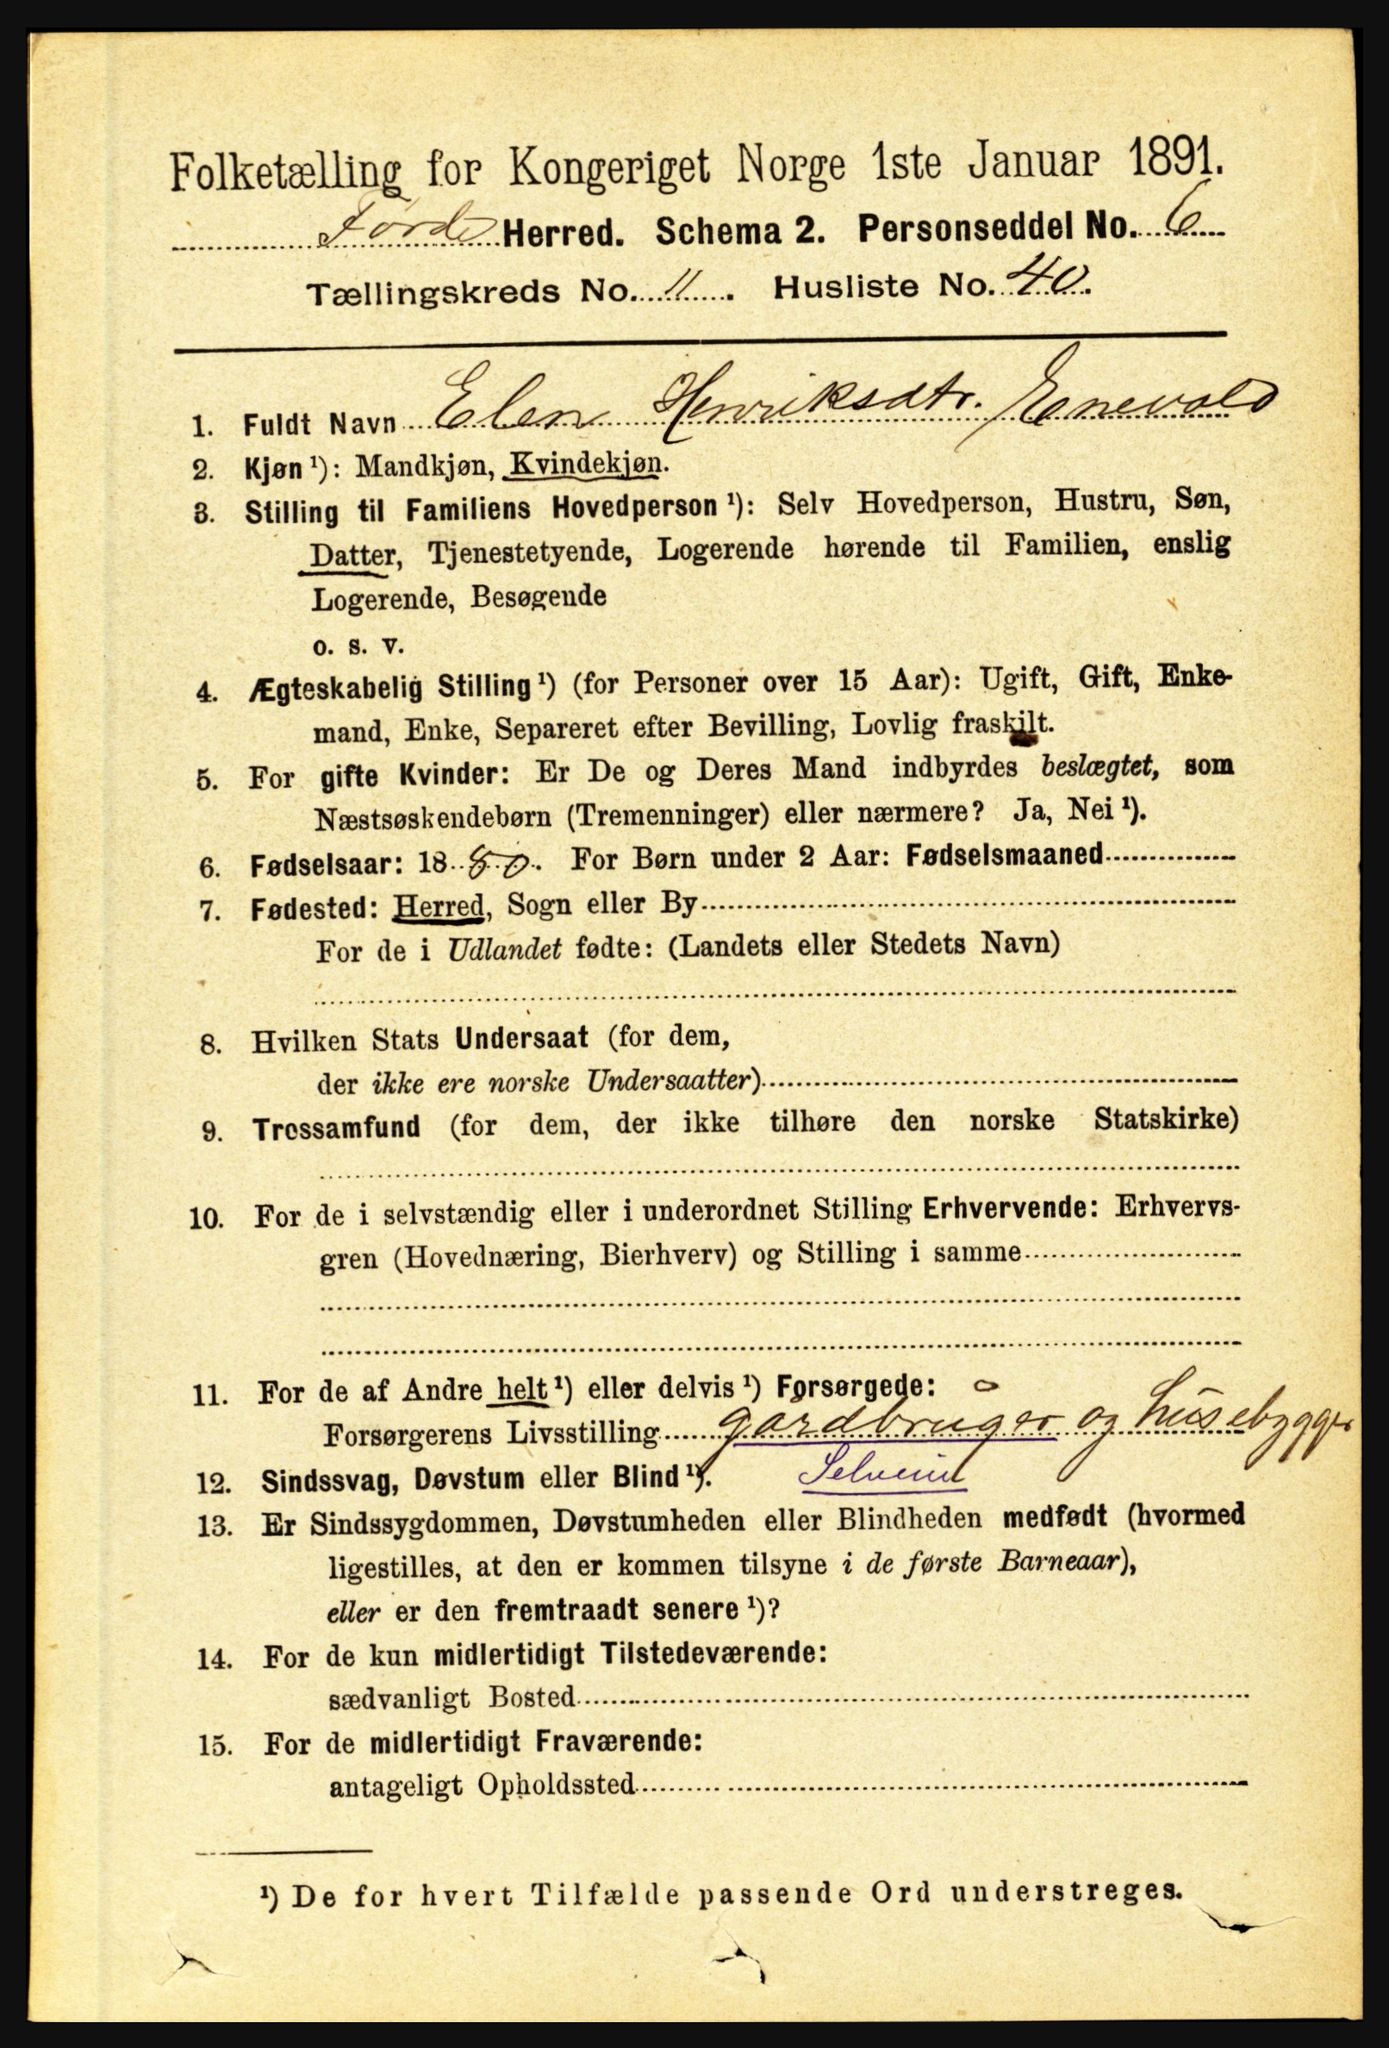 Folketælling for Kongeriget Norge 1ste Januar 1891.
Førde Herred. Schema 2. Personseddel No. 6
Tællingskreds No. 11. Husliste No. 40.
1. Fuldt Navn Elen Henriksdtr. Enevold
2. Kjøn ¹): Mandkjøn, Kvindekjøn.
3. Stilling til Familiens Hovedperson ¹): Selv Hovedperson, Hustru, Søn,
Datter, Tjenestetyende, Logerende hørende til Familien, enslig
Logerende, Besøgende
o. s. v.
4. Ægteskabelig Stilling ¹) (for Personer over 15 Aar): Ugift, Gift, Enke-
mand, Enke, Separeret efter Bevilling, Lovlig fraskilt.
5. For gifte Kvinder: Er De og Deres Mand indbyrdes beslægtet, som
Næstsøskendebørn (Tremenninger) eller nærmere? Ja, Nei ¹).
6. Fødselsaar: 1880. For Børn under 2 Aar: Fødselsmaaned
7. Fødested: Herred, Sogn eller By
For de i Udlandet fødte: (Landets eller Stedets Navn)
8. Hvilken Stats Undersaat (for dem,
der ikke ere norske Undersaatter)
9. Trossamfund (for dem, der ikke tilhøre den norske Statskirke)
10. For de i selvstændig eller i underordnet Stilling Erhvervende: Erhvervs-
gren (Hovednæring, Bierhverv) og Stilling i samme
11. For de af Andre helt ¹) eller delvis ¹) Forsørgede:
Forsørgerens Livsstilling gardbruger og husebygger
12. Sindssvag, Døvstum eller Blind ¹). Selveier
13. Er Sindssygdommen, Døvstumheden eller Blindheden medfødt (hvormed
ligestilles, at den er kommen tilsyne i de første Barneaar),
eller er den fremtraadt senere ¹)?
14. For de kun midlertidigt Tilstedeværende:
sædvanligt Bosted
15. For de midlertidigt Fraværende:
antageligt Opholdssted
¹) De for hvert Tilfælde passende Ord understreges.